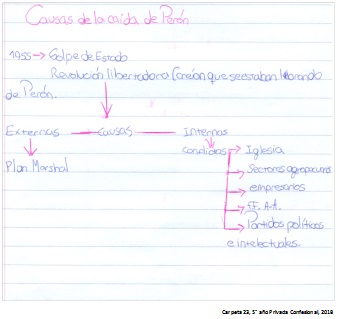 Causas de la caída de Perón
1955 → Golpe de Estado
Revolución libertadora (creían que se estaban liberando
de Perón.
Externas — causas — Internas
Plan Marshal
conflictos → Iglesia
→ Sectores agropecuarios
→ empresarios
→ FF. A.A.
→ Partidos políticos
e intelectuales.
Carpeta 23, 5° año Privada Confesional, 2018